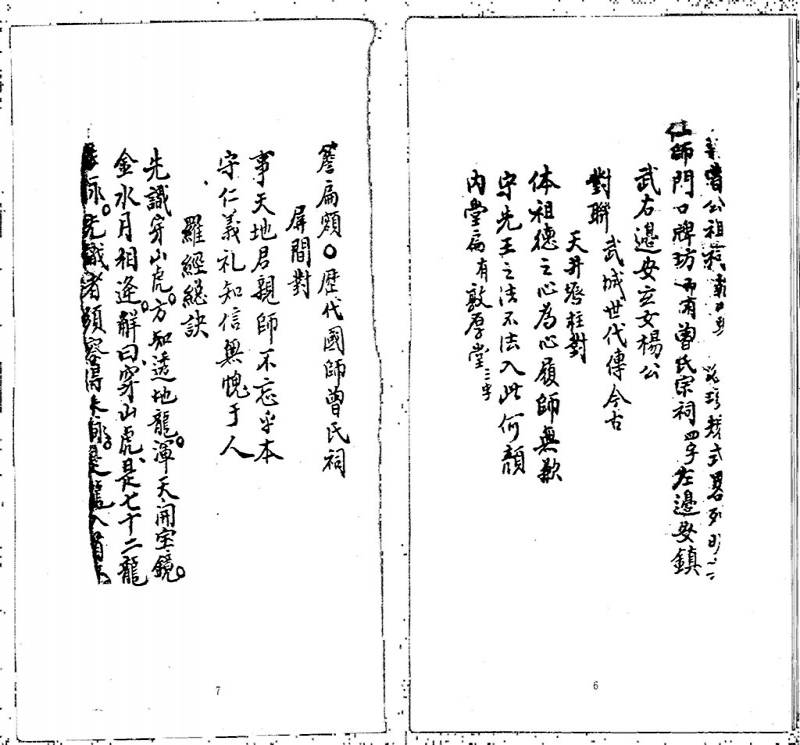 曾公祖祠
式畧列
師門口牌坊有曾氏宗祠四字左邊安鎮
武右邊安立文楊公
對聯 武城世代傳今古
天井硌柱對
体祖德之心為心履師無歉
守先王之法不法入此何顏
内堂扁有敦厚堂三字
6
簷扁額。歷代國師曾氏祠
屏間對
事天地君親師不忘乎本
守仁義礼知信無愧于人
羅經總訣
先識穿山虎。方知透地龍。渾天開宝鏡。
金水月相逢。解曰穿山虎是七十二龍
先識者須
7